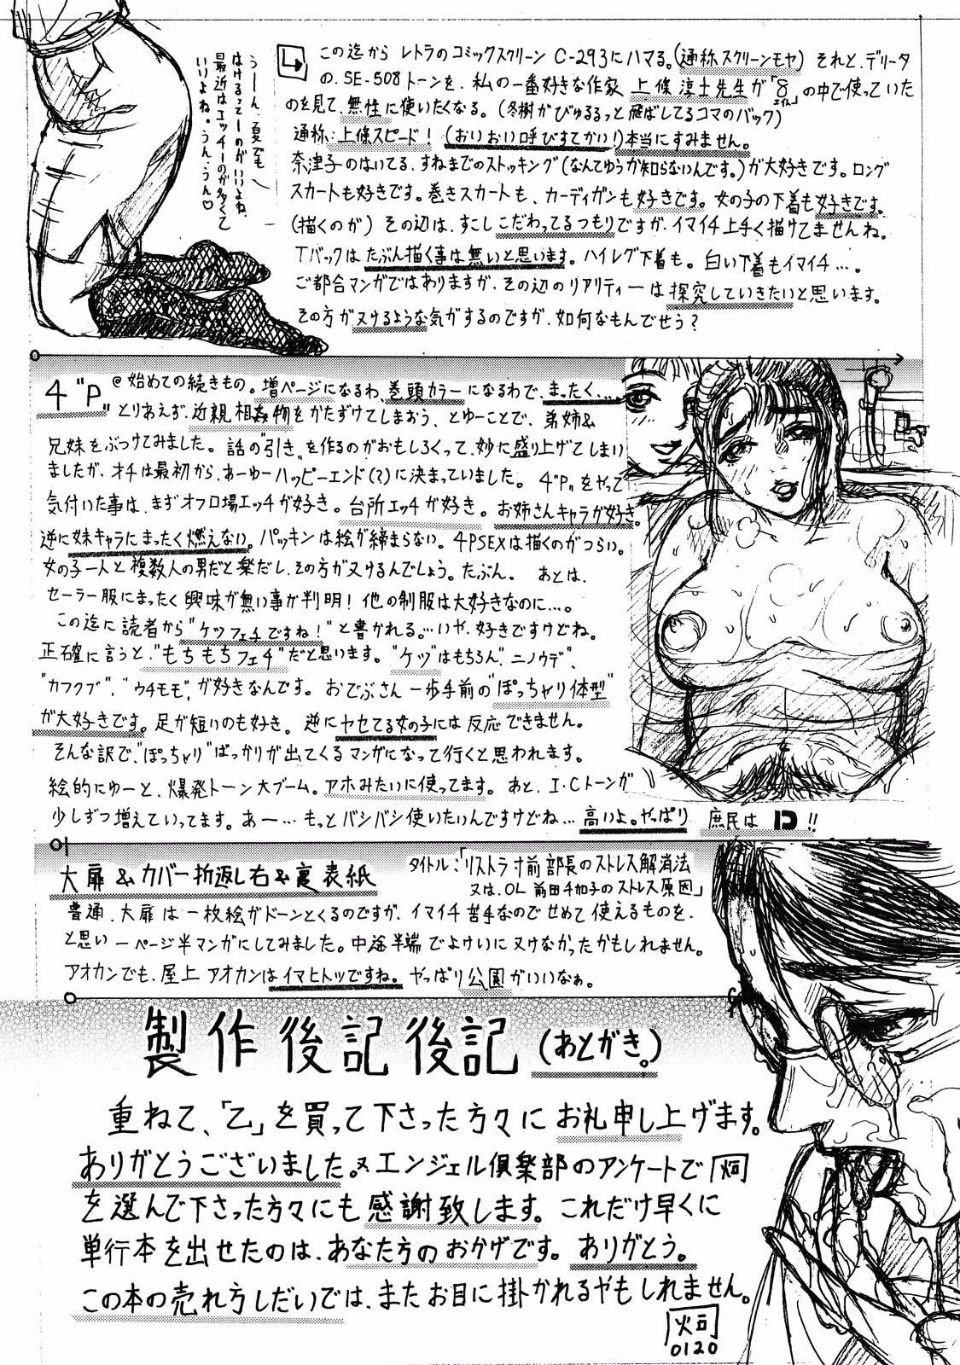 うーん、夏でも
はけるってーのがいけよね、
最近はエッチーのが多くて
いけよね。うん、うん♡
この迄から レトラのコミックスクリーン C-293にハマる。(通称スクリーンモヤ) それと、デリータ
の、SE-508トーンを、私の一番好きな作家 上條淳士先生が「8」の中で使っていた
のを見て、無性に使いたくなる。(冬樹がびゅるるっと飛ばしてるコマのバック)
通称:上條スピード! (おりおい呼びすてかい!)本当にすみません。
奈津子のはいてる、すねまでのストッキング(なんてゆうか知らないんです。)が大好きです。ロング
スカートも好きです。巻きスカートも、カーディガンも好きです。女の子の下着も好きです。
(描くのが) その辺は、すこしこだわってるつもりですが、イマイチ上手く描けてませんね。
Tバックはたぶん描く事は無いと思います。ハイレグ下着も。白い下着もイマイチ…。
ご都合マンガではありますが、その辺のリアリティーは探究していきたいと思います。
その方がヌけるような気がするのですが、如何なもんでせう?
4"P" @始めての続きもの。増ページになるわ、巻頭カラーになるわで、まったく….
とりあえず、近親相姦物をかたずけてしまおう、とゆーことで、弟姉&
兄妹をぶっつけてみました。話の"引き"を作るのがおもしろくって、妙に盛り上げてしまい
ましたが、オチは最初から、あーゆーハッピーエンド(?)に決まっていました。4"P"をやって
気付いた事は、まずオフロ場エッチが好き。台所エッチが好き。お姉さんキャラが好き。
逆に妹キャラにまったく燃えない。パッキンは絵が締まらない。4PSEXは描くのがつらい。
女の子一人と複数人の男だと楽だし、その方がヌけるんでしょう。たぶん。 あとは、
セーラー服にまったく興味が無い事が判明!他の制服は大好きなのに…。
この迄に読者から"ケツフェチですね!"と書かれる。…いや、好きですけどね。
正確に言うと、"もちもちフェチ"だと思います。"ケツ"はもちろん、"ニノウデ"、
"カフクブ"、"ウチモモ"、が好きなんです。おでぶさん一歩手前の"ぽっちゃり体型"
が大好きです。足が短いのも好き。逆にヤセてる女の子には反応できません。
そんな訳で、"ぽっちゃり"ばっかりが出てくるマンガになって行くと思われます。
絵的にゆーと、爆発トーン大ブーム。アホみたいに使ってます。あと、I・Cトーンが
少しずつ増えていってます。あー…もっとバシバシ使いたいんですけどね…高いよ。やっぱり 庶民は !!
大扉&カバー折返し右&裏表紙
タイトル:「リストラ寸前部長のストレス解消法
又は、OL 前田千加子のストレス原因」
普通、大扉は一枚絵がドーンとくるのですが、イマイチ苦手なのでせめて使えるものを、
と思い一ページ半マンガにしてみました。中途半端でよけいにヌけなかったかもしれません。
アオカンでも、屋上アオカンはイマヒトツですね。やっぱり公園がいいなぁ。
製作後記後記(あとがき。)
重ねて、「乙」を買って下さった方々にお礼申し上げます。
ありがとうございました。ヌエンジェル倶楽部のアンケートで炯
を選んで下さった方々にも感謝致します。これだけ早くに
単行本を出せたのは、あなた方のおかげです。ありがとう。
この本の売れ方しだいでは、またお目に掛かれるやもしれません。
0120